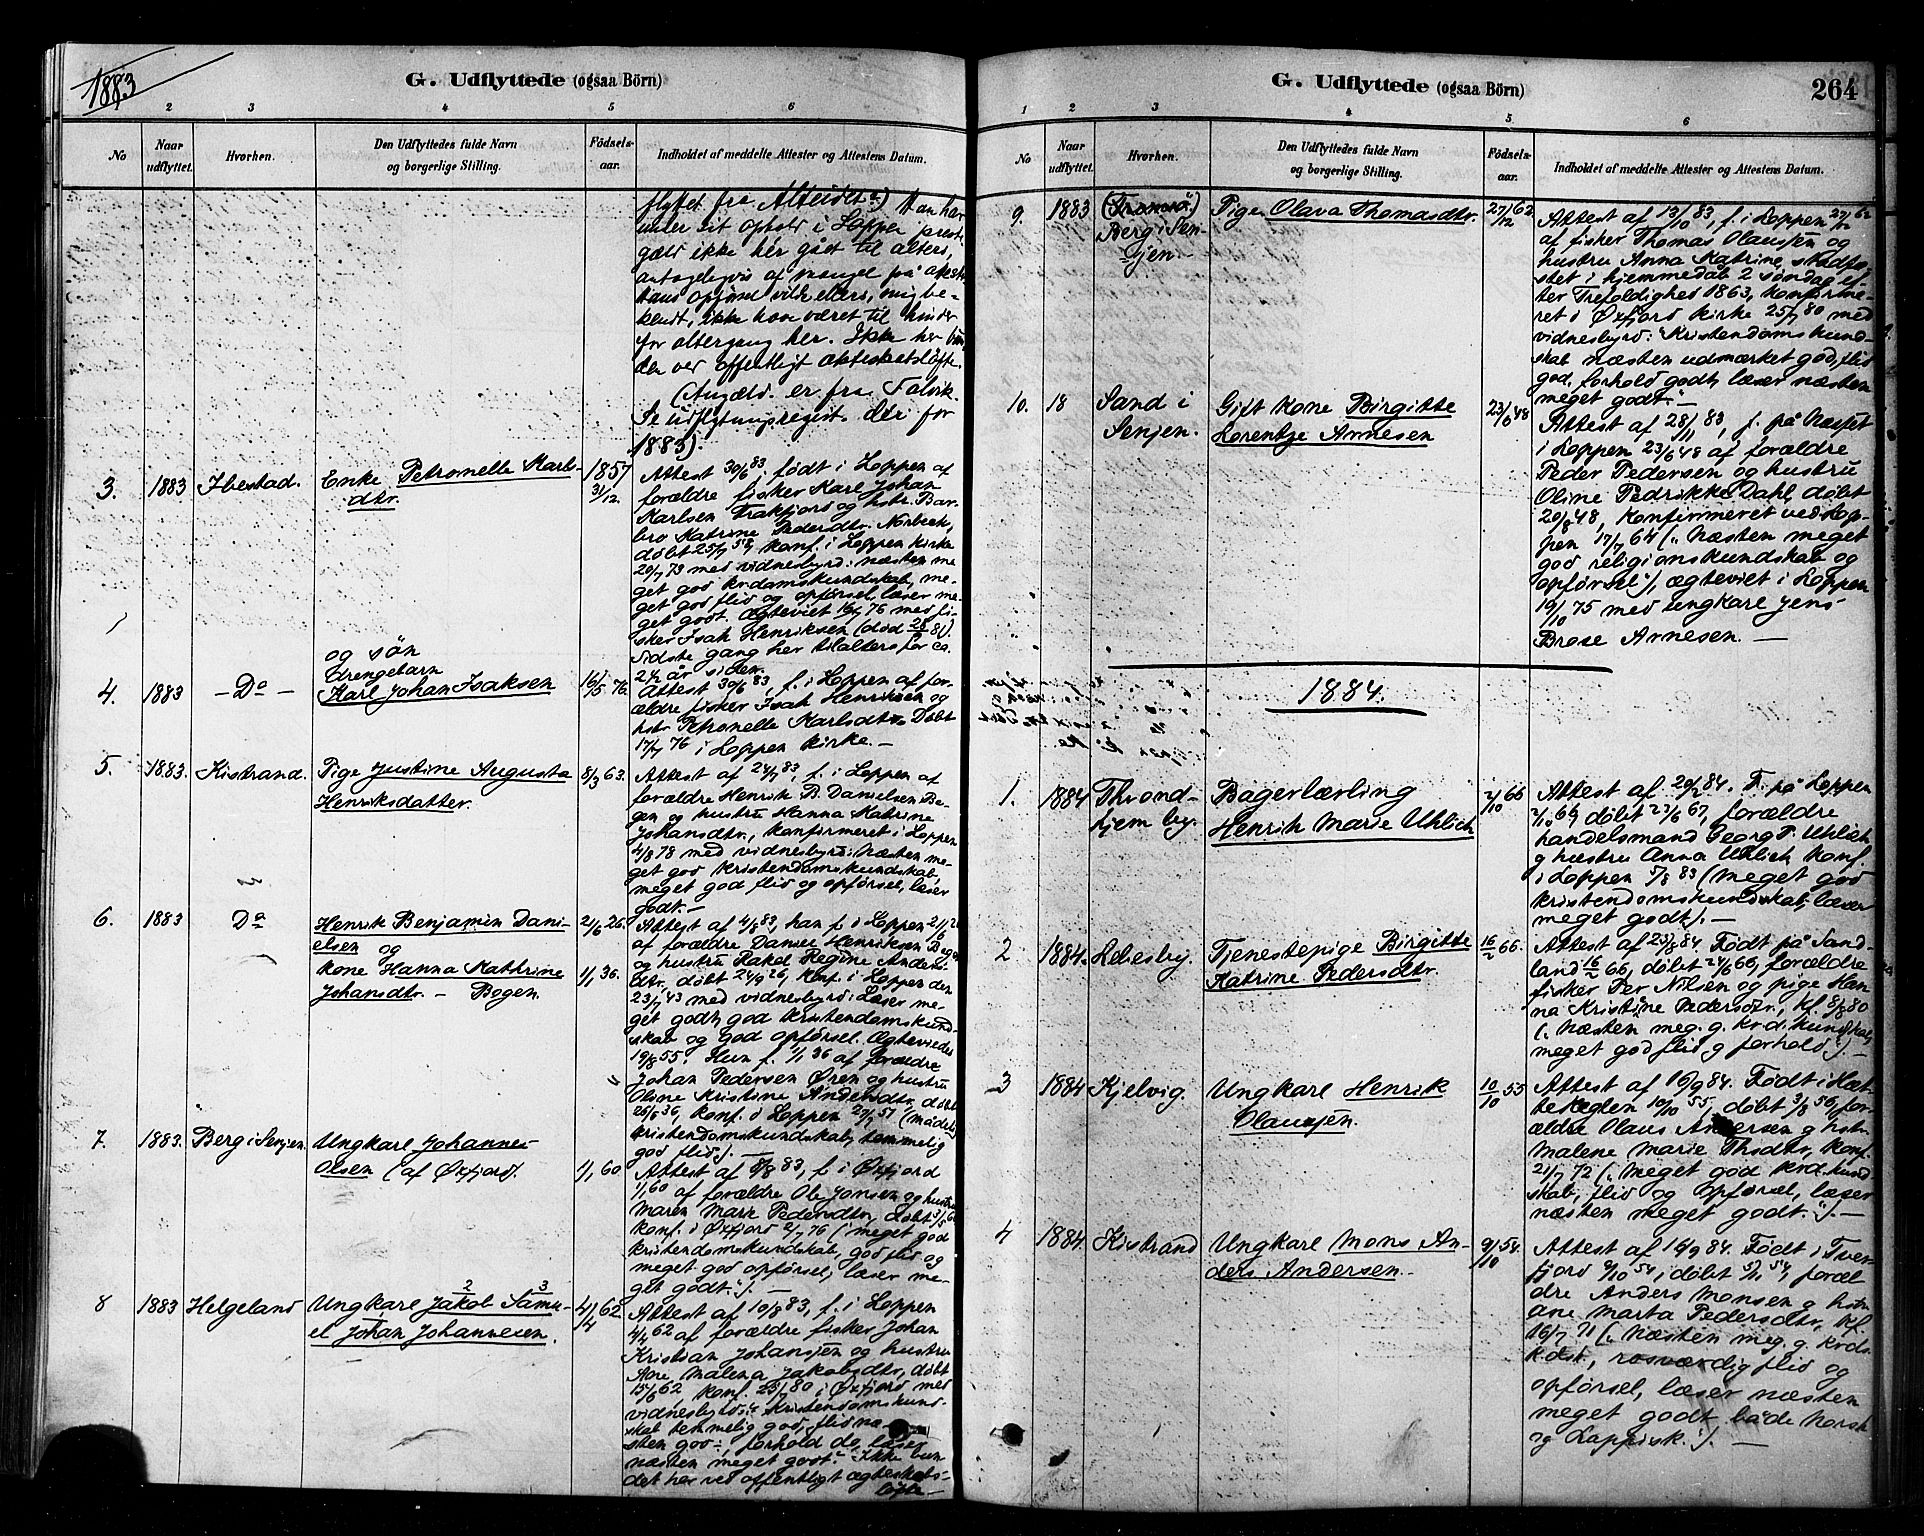 1883
G. Udflyttede (ogsaa Börn)
2 3 4 5 6
No
Naar udflyttet.
Hvorhen.
Den Udflyttedes fulde Navn
og borgerlige Stilling.
Födsels-
aar.
Indholdet af meddelte Attester og Attestens Datum.
flyttet fra Alteidet.) Han har
under sit ophold i Loppen præste-
gæld ikke hér gået til alters,
antageligvis af mangel på
for altergang her. Ikke her bun-
den ved offentligt ægteskabsløfte.
(Angæld. er fra Talvik.
Se udflytningsregist. der for
1883).
3. 1883 Ibestad. Enke Petronelle Karls-
dtr.
1857
31/12
Attest 30/6 83, født i Loppen af
forældre fisker Karl Johan
Karlsen Frakfjord og hstr. Bar-
bro Katrine Pedersdtr. Norbeck,
døbt 25/7 58, konf. i Loppen kirke
20/7 73 med vidnesbyrd: næsten me-
get god krdomskundskab, me-
get god flid og opførsel, læser me-
get godt. Ægteviet 16/7 76 med fi-
sker Isak Henriksen (død 28/ 81).
Sidste gang her tilalters for ca.
2½ år siden.
og søn
drengebarn
4. 1883 — Do — Karl Johan Isaksen 16/5 76.
Attest 30/6 83, f. i Loppen af for-
ældre fisker Isak Henriksen og
hstr. Petronelle Karlsdtr. Døbt
17/7 76 i Loppen kirke. —
5. 1883. Kistrand. Pige Justine Augusta
Henriksdatter.
8/3 63.
Attest af 24/7 83, f. i Loppen af
forældre Henrik B. Danielsen Bo-
gen og hustru Hanna Katrine
Johansdtr., konfirmeret i Loppen
4/8 78 med vidnesbyrd: Næsten me-
get god kristendomskundskab,
meget god flid og opførsel, læser
godt. —
6. 1883 Do Henrik Benjamin Dani-
elsen og
kone Hanna Kathrine
Johansdtr. — Bogen.
21/6 26.
1/1 36.
Attest af 4/8 83, han f. i Loppen 21/6 26
af forældre Daniel Henriksen Bogen
og hustru Rakel Regine Anders-
dtr., døbt 24/9 26, konf. i Loppen den
23/7 43 med vidnesbyrd: Læser me-
get godt, god kristendomskund-
skab og god opførsel. Ægteviedes
19/8 55. Hun f. 1/1 36 af forældre
Johan Pedersen Øren og hustru
Oline Kristine Andersdtr. døbt
26/6 36, konf. i Loppen 27/7 51 (mådel.
kristendomskundskab, temmelig
god flid). —
7. 1883. Berg i Senjen. Ungkarl Johannes
Olsen (af Øxfjord).
1/1 60
Attest af 8/8 83, f. i Øxfjord
1/1 60 af forældre Ole Jonsen og hustru
Maren Marie Pedersdtr., døbt
konf. i Øxfjord 2/7 76 (meget god
kristendomskundskab, god flid og
meget god opførsel, læser me-
get godt.). —
8 1883 Helgeland Ungkarl Jakob Samu-
el Johan Johannesen.
2 3
4/4 62
Attest af 10/8 83, f. i Loppen
4/4 62 af forældre fisker Johan
Kristian Johansen og hustru
Ane Malena Jakobsdtr., døbt
15/6 62, konf. 25/7 80 i Øxfjord med
vidnesbyrd: "Kristendomskund-
skab temmelig god, flid næ-
sten god, forhold do, læser
næsten meget godt." Ikke bun-
det her ved offentligt ægteskabs-
løfte —
G. Udflyttede (ogsaa Börn)
264
1 2 3 4 5 6
No
Naar udflyttet.
Hvorhen.
Den Udflyttedes fulde Navn
og borgerlige Stilling.
Födsels-
aar.
Indholdet af meddelte Attester og Attestens Datum.
9. 1883 (Tromsø)
Berg i Sen-
jen —
Pige Olava Thomasdtr.
27/12 62
Attest af 13/10 83, f. i Loppen 27/12 62
af fisker Thomas Olaussen og
hustru Anna Katrine, stadfæ-
stet i hjemmedåb 2 søndag ef-
ter Trefoldighed 1863, konfirme-
ret i Øxfjord kirke 25/7 80 med
vidnesbyrd: "Kristendomskund-
skab næsten udmærket god, flid
god, forhold godt, læser næsten
meget godt." —
10. 18 Sand i
Senjen.
Gift kone Birgitte
Lorentze Arnesen
23/6 48
Attest af 28/11 83, f. på Næsset
i Loppen 23/6 48 af forældre
Peder Pedersen og hustru
Oline Fedrikke Dahl, døbt
20/8 48, konfirmeret ved Lop-
pen 17/7 64 (: Næsten meget
god religionskundskab og
opførsel), ægteviet i Loppen
19/10 75 med ungkarl Jens
Brose Arnesen. —
1884.
1. 1884 Thrond-
hjem by.
Bagerlærling
Henrik Marie Uhlich
2/10 66
Attest af 20/2 84. F. på Loppen
2/10 66, døbt 23/6 67, forældre
handelsmand Georg P. Uhlich
g hustru Anna Uhlich konf.
i Loppen 5/8 83 (meget god
kristendomskundskab, læser
meget godt). —
2 1884. Lebesby. Tjenestepige Birgitte
Katrine Pedersdtr.
16/2 66.
Attest af 23/8 84. Født på Sand-
land 16/2 66, døbt 24/6 66, forældre
fisker Per Nilsen og pige Han-
na Kristine Pedersdtr., kf. 8/8 80
(: Næsten meg. g. krd.kundskab,
meget god flid g forhold :). —
3 1884 Kjelvig. Ungkarl Henrik
Olaussen.
10/10 55
Attest af 16/9 84. Født i Hæt-
tekeglen 10/10 55, døbt 3/8 56, for-
ældre Olaus Andersen g hstr.
Malene Marie Thsdtr., konf.
21/7 72 (: Meget god krd.kund-
skab, flid og opførsel, læser
næsten meget godt. :). —
4 1884. Kistrand Ungkarl Mons An-
ders Andersen. —
9/10 54.
Attest af 16/9 84. Født i Tver-
fjord 9/10 54, døbt 5/11 54, foræl-
dre Anders Monsen g hstr.
Ane Marta Pedersdtr., kf.
16/7 71 (: Næsten meg. g. krds.
kdsk., rosværdig flid og
opførsel, læser næsten
meget godt både norsk
og Lappisk. :). —